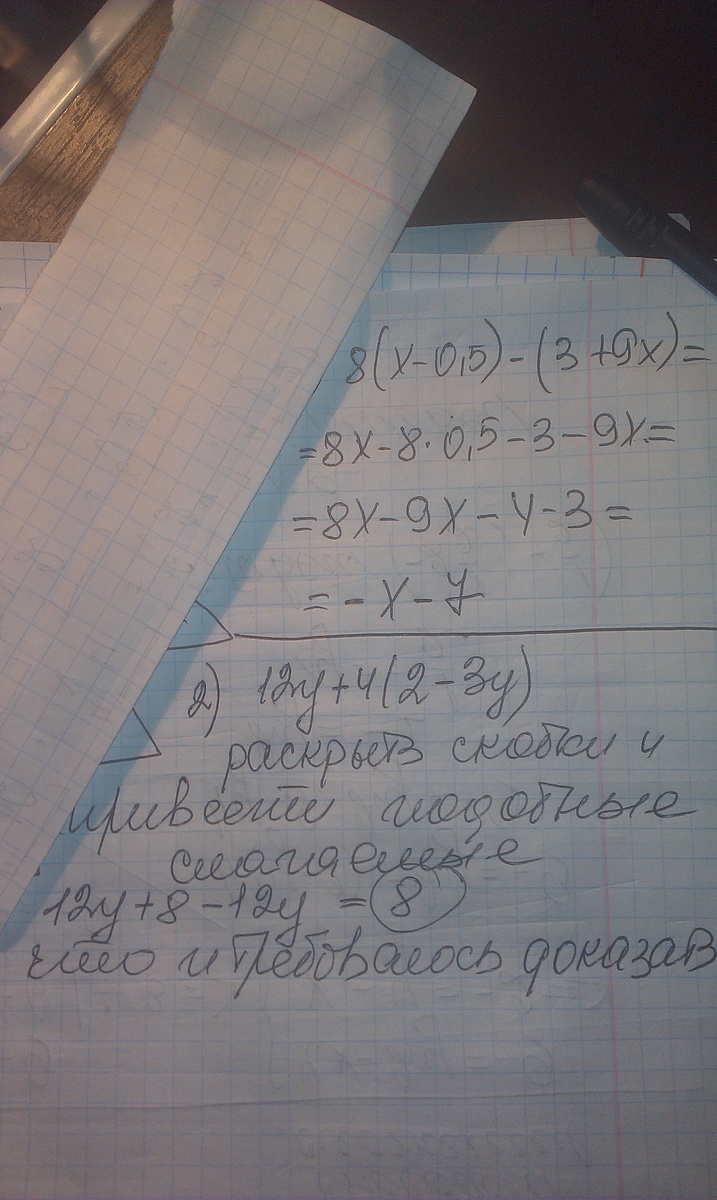 8(x-0,5)-(3+9x)=
=8x-8·0,5-3-9x=
=8x-9x-4-3=
=-x-7
2) 12y+4(2-3y)
раскрыть скобки и
привести подобные
слагаемые
12y+8-12y = 8
что и требовалось доказать